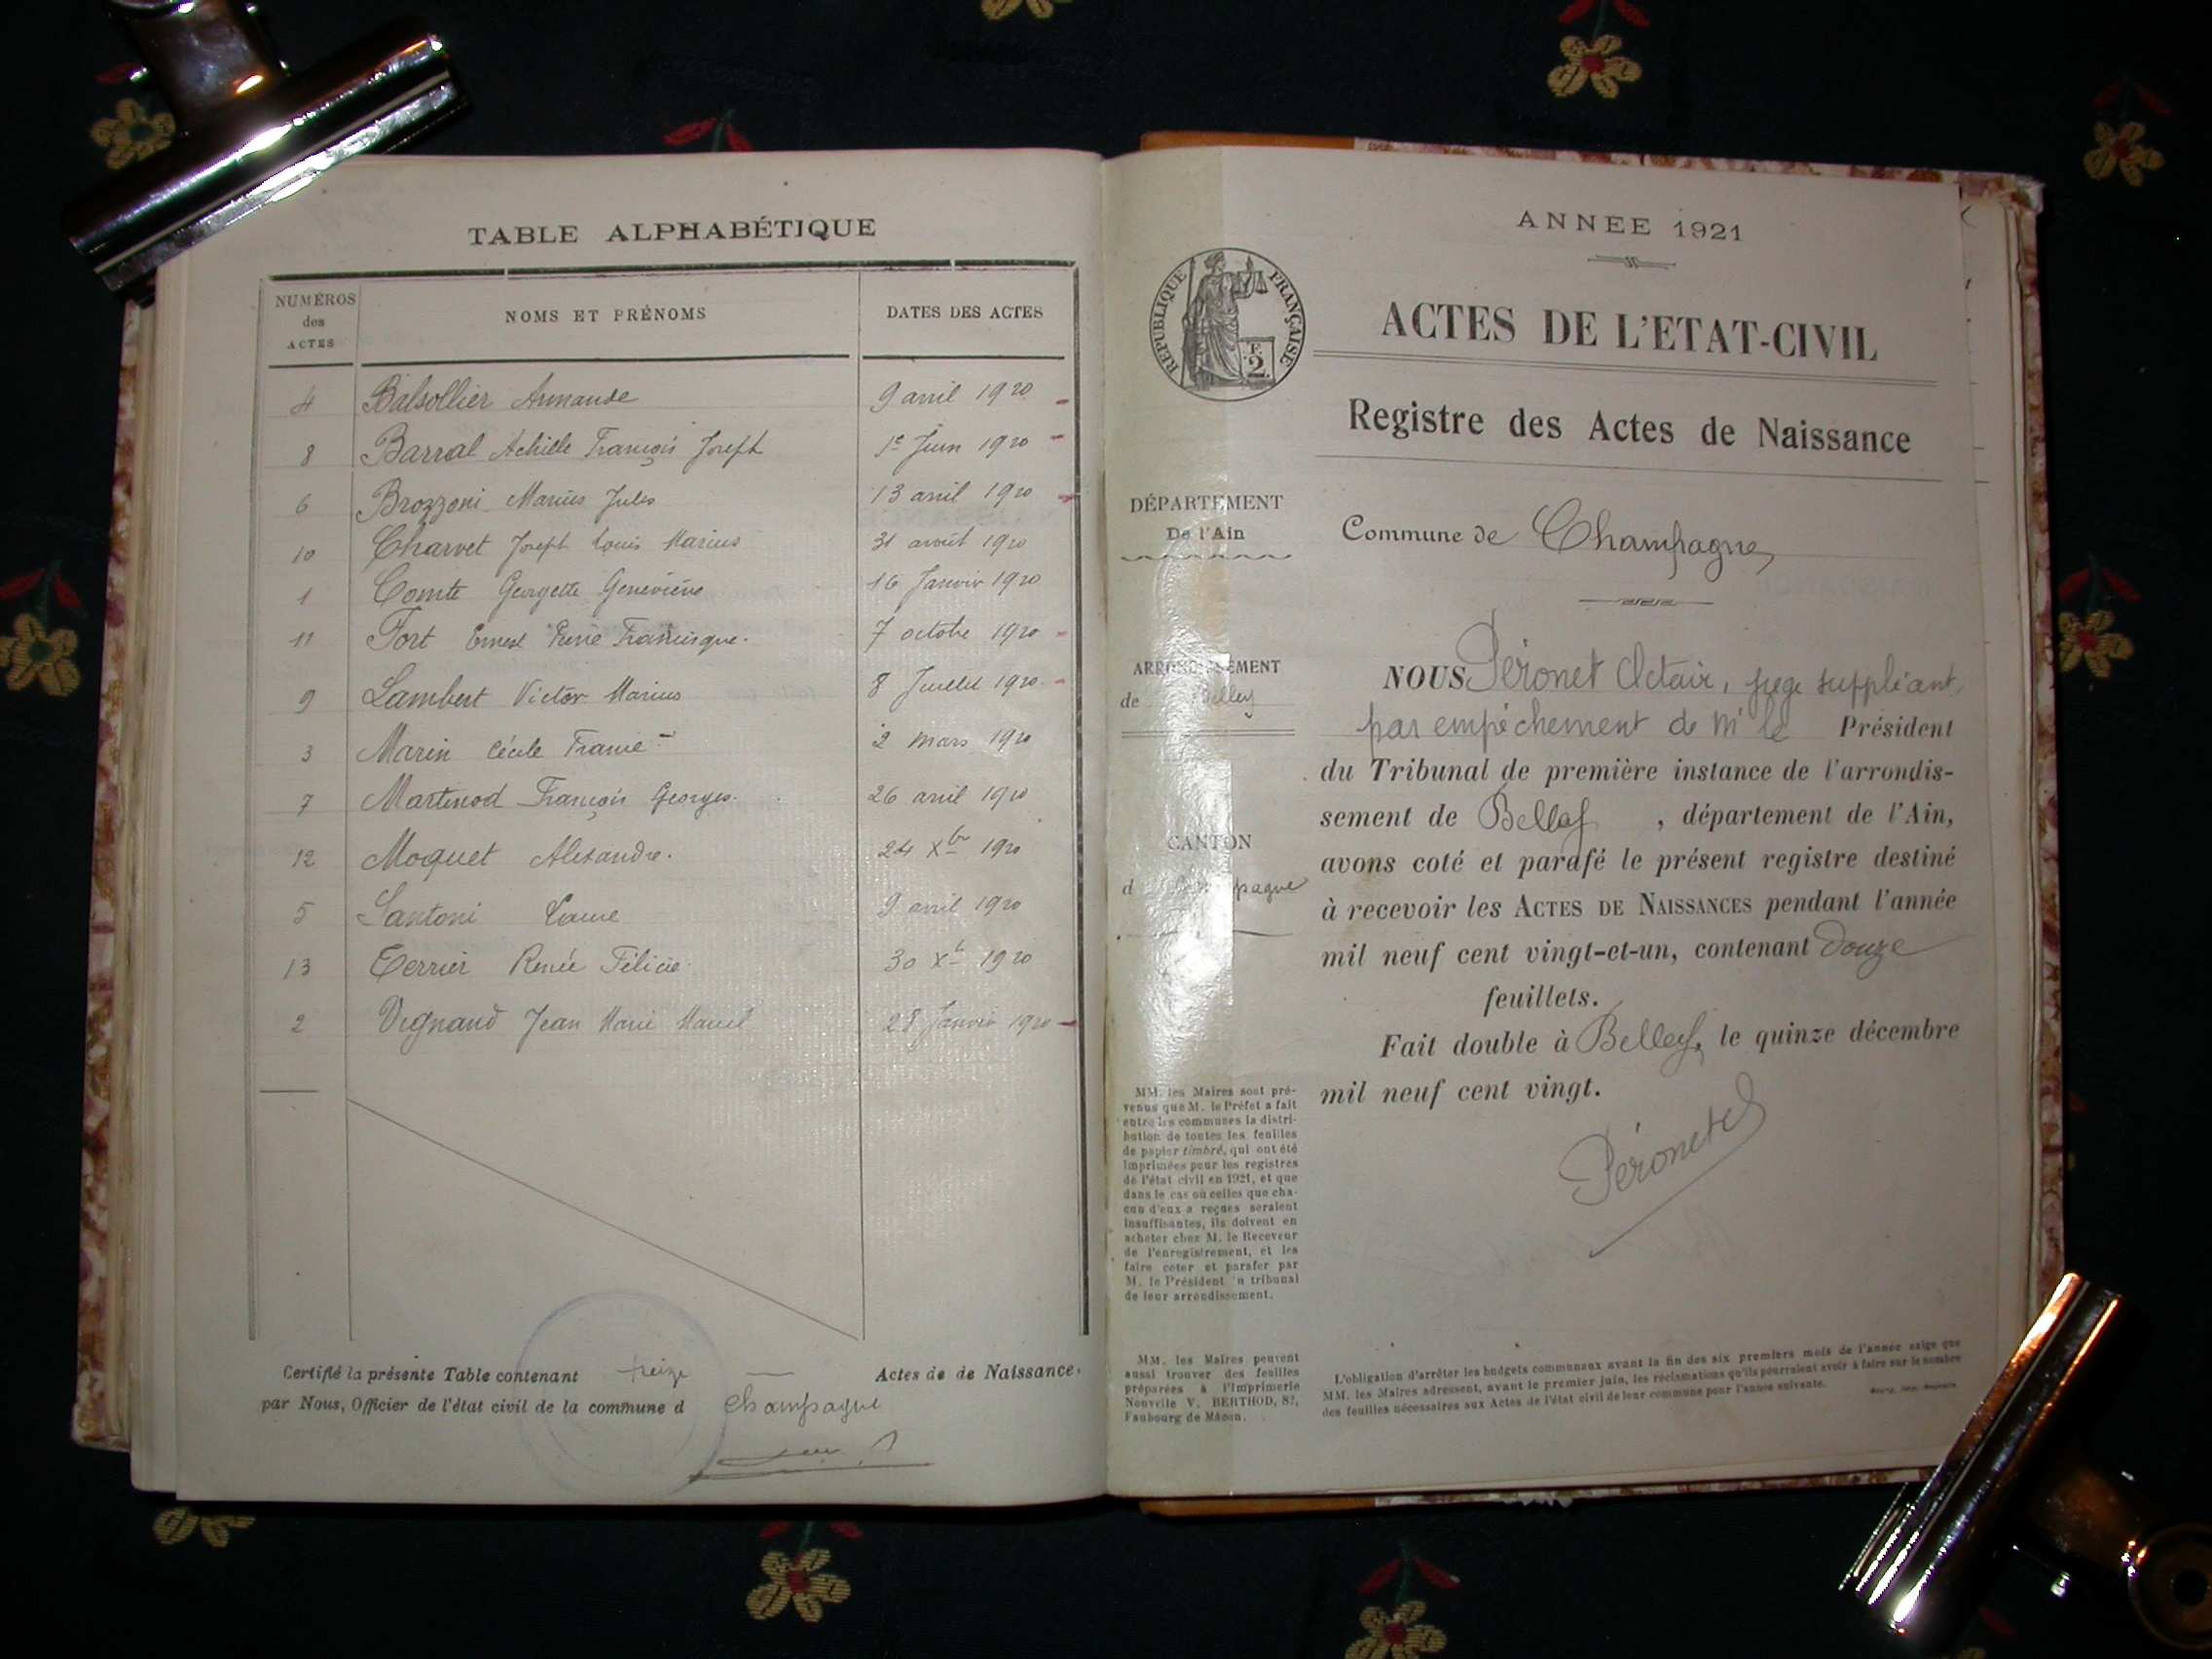 TABLE ALPHABÉTIQUE
NUMÉROS des ACTES NOMS ET PRÉNOMS DATES DES ACTES
4 Balsollier Armande 9 avril 1920
8 Barral Achille François Joseph 1er Juin 1920
6 Brozzoni Marius Jules 13 avril 1920
10 Charvet Joseph Louis Marius 31 août 1920
1 Comte Georgette Geneviève 16 Janvier 1920
11 Fort Ernest Francisque. 7 octobre 1920
9 Lambert Victor Marius 8 Juillet 1920
3 Marin Cécile 2 mars 1920
7 Martinod François Georges. 26 avril 1920
12 Moquet Alexandre. 24 Xbre 1920
5 Santoni 9 avril 1920
13 Terrier Renée Félicie 30 Xb 1920
2 Vignand Jean Marie Marcel 28 Janvier 1920
Certifié la présente Table contenant treize Actes de de Naissance.
par Nous, Officier de l'état civil de la commune d Champagne
ANNEE 1921
RÉPUBLIQUE FRANÇAISE
2
ACTES DE L'ETAT-CIVIL
Registre des Actes de Naissance
DÉPARTEMENT
De l'Ain
Commune de Champagne
ARRONDISSEMENT
de Belley
CANTON
d Champagne
NOUS Péronet Octave, juge suppléant,
par empêchement de Mr le Président
du Tribunal de première instance de l'arrondis-
sement de Belley, département de l'Ain,
avons coté et parafé le présent registre destiné
à recevoir les ACTES DE NAISSANCES pendant l'année
mil neuf cent vingt-et-un, contenant douze
feuillets.
Fait double à Belley, le quinze décembre
mil neuf cent vingt.
Péronet
MM. les Maires sont pré-
venus que M. le Préfet a fait
entre les communes la distri-
bution de toutes les feuilles
de papier timbré, qui ont été
imprimées pour les registres
de l'état civil en 1921, et que
dans le cas où celles que cha-
cun d'eux a reçues seraient
insuffisantes, ils doivent en
acheter chez M. le Receveur
de l'enregistrement, et les
faire coter et parafer par
M. le Président du tribunal
de leur arrondissement.
MM. les Maires peuvent
aussi trouver des feuilles
préparées à l'Imprimerie
Nouvelle V. BERTHOD, 82,
Faubourg de Mâcon.
L'obligation d'arrêter les budgets communaux avant la fin des six premiers mois de l'année exige que
MM. les Maires adressent, avant le premier juin, les réclamations qu'ils pourraient avoir à faire sur le nombre
des feuilles nécessaires aux Actes de l'état civil de leur commune pour l'année suivante.